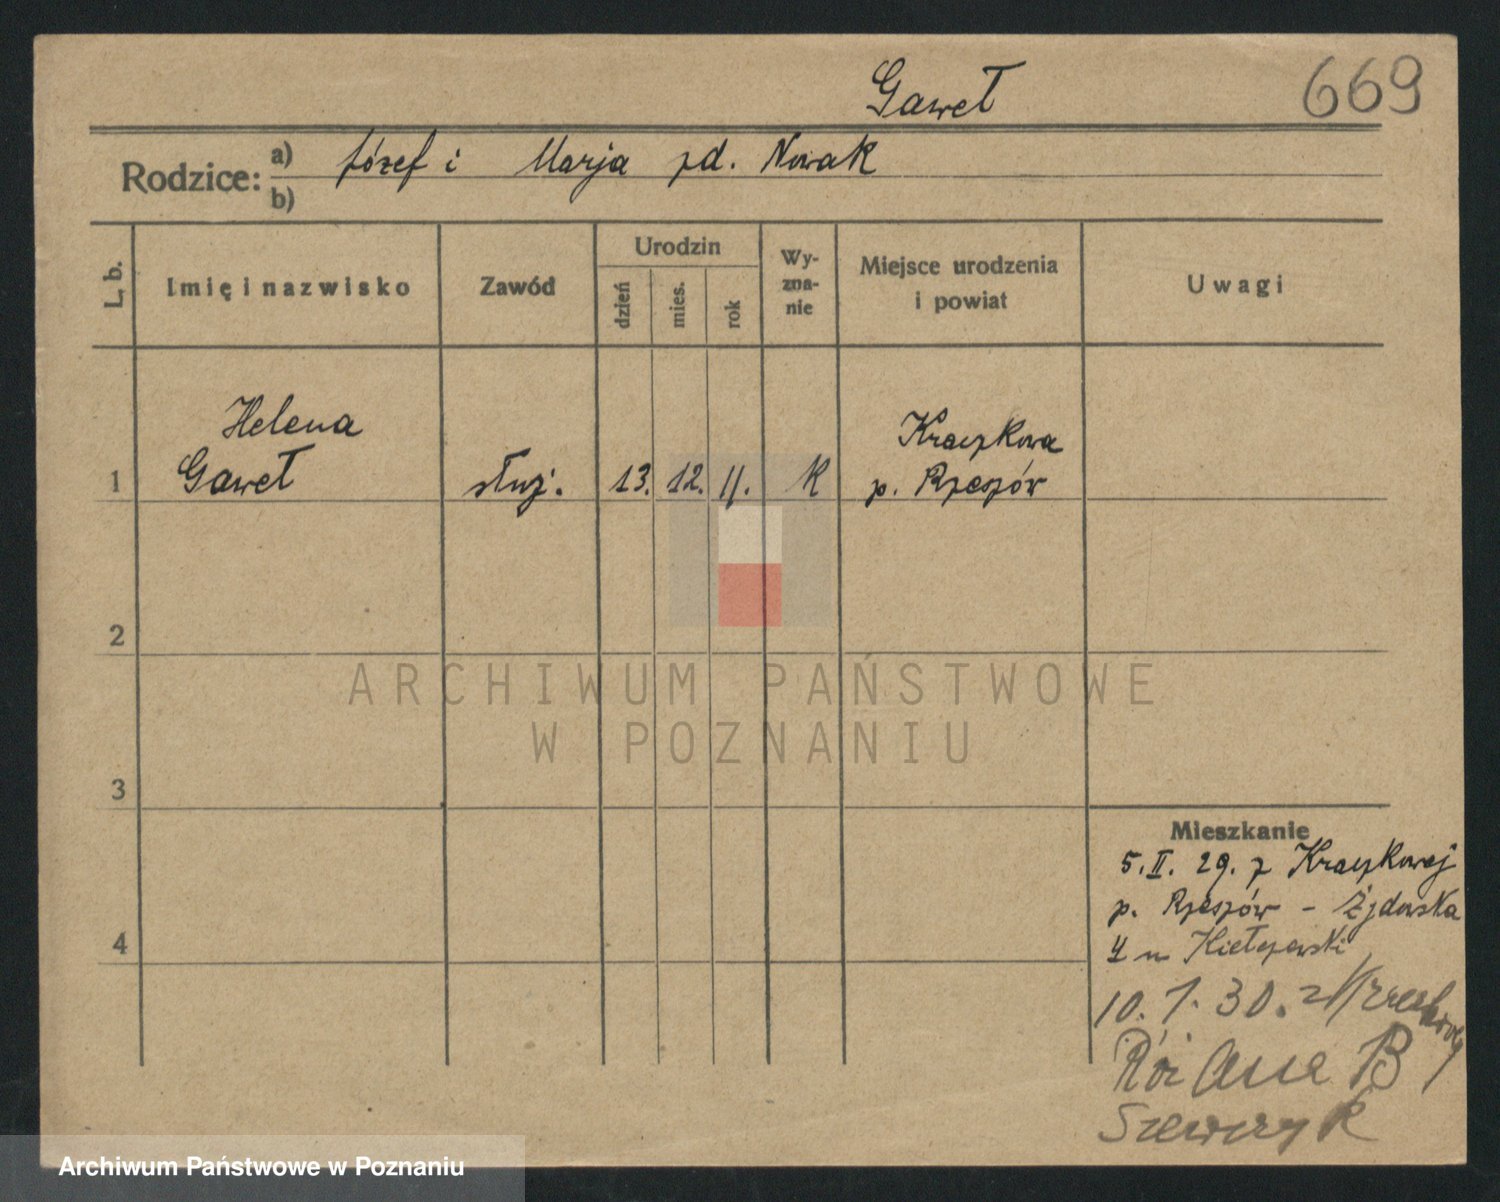 Gaweł
669
Rodzice: a) Józef i Marja zd. Nowak
b)
L. b.
Imię i nazwisko
Zawód
Urodzin
dzień
mies.
rok
Wy-
zna-
nie
Miejsce urodzenia
i powiat
Uwagi
Helena
1 Gaweł
służ.
13. 12. 11.
K
Kraczkowa
p. Rzeszów
2
ARCHIWUM PAŃSTWOWE
W POZNANIU
3
4
Mieszkanie
5.II. 29. z Kraczkowej
p. Rzeszów - Żydowska
4 u Kiełczewski
10. 1. 30. z
B
Szewczyk
Archiwum Państwowe w Poznaniu